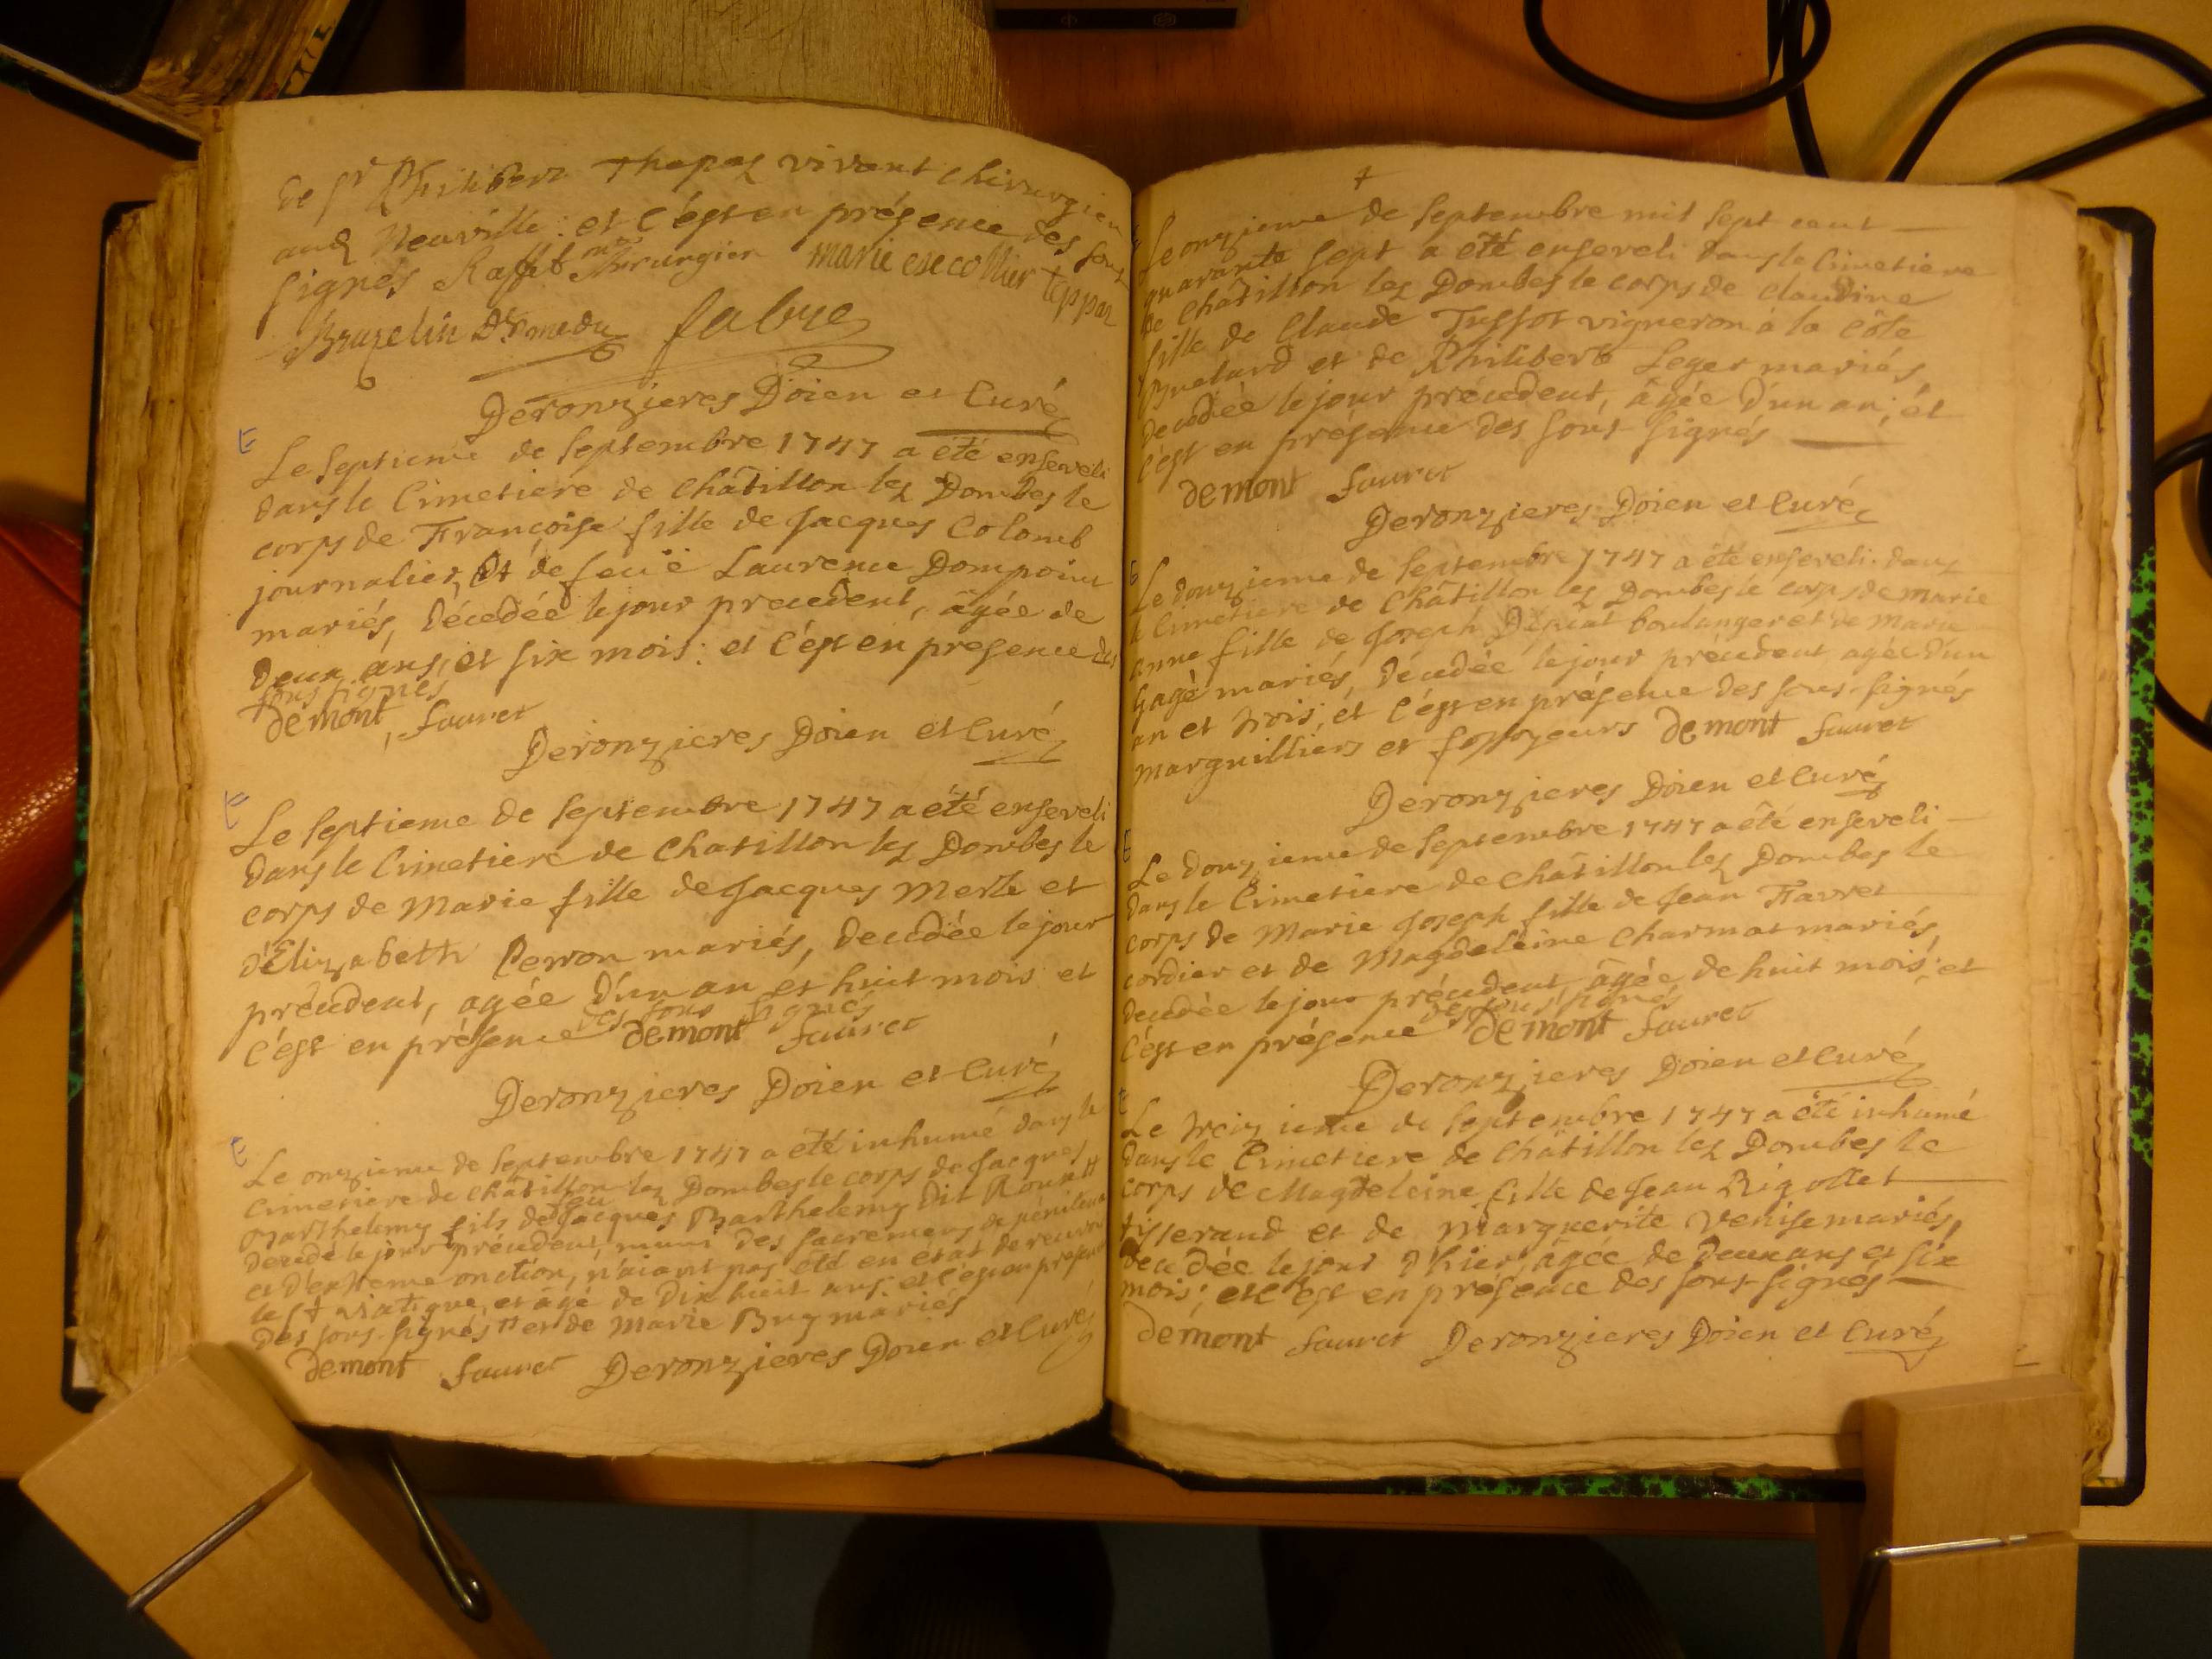 de Sr Philibert Thapaz vivant chirurgien
aud Neuville : et c'est en présence des sous
signés Raffet me chirurgien marie escollier
fabre
Deronzieres Doien et Curé
Le Septieme de Septembre 1747 a été enseveli
dans le Cimetiere de Châtillon lez Dombes le
corps de Françoise fille de Jacques Colomb
journalier, et de feuë Laurence Dompoint
mariés, décédée le jour precedent, âgée de
deux ans, et six mois : et c'est en presence des
sous signés
demont, fauret
Deronzieres Doien et Curé
Le Septieme de Septembre 1747 a été enseveli
dans le Cimetiere de Chatillon lez Dombes le
corps de Marie fille de Jacques Merle et
d'Elizabeth Perron mariés, decedée le jour
précedent, agée d'un an et huit mois et
c'est en présence des sous signés demont fauret
Deronzieres Doien et Curé
Le onzieme de Septembre 1747 a été inhumé dans le
Cimetiere de Châtillon lez Dombes le corps de Jacques
Barthelemy fils de feu Jacques Barthelemy dit #
decedé le jour précedent, muni des sacremens de pénitence
et d'extreme onction, n'aiant pas été en état de recevoir
le St viatique, et âgé de dix huit ans : et c'est en présence
des sous-signés # et de Marie Buy mariés
demont fauret Deronzieres Doien et Curé
Le onzieme de Septembre mil sept cent
quarante sept a été enseveli dans le Cimetiere
de Châtillon lez Dombes le corps de Claudine
fille de Claude Tussot vigneron à la Côte
et de Philiberte Leger mariés,
decedée le jour précedent, âgée d'un an ; et
c'est en présence des sous signés
demont fauret
Deronzieres Doien et Curé
Le douzieme de Septembre 1747 a été enseveli dans
le Cimetiere de Châtillon lez Dombes le corps de Marie
anne fille de Joseph boulanger et de Marie
mariés, décedée le jour précedent agée d'un
an et trois ; et c'est en présence des sous-signés
marguilliers et fossoyeurs demont fauret
Deronzieres Doien et Curé
Le douzieme de Septembre 1747 a été enseveli
dans le Cimetiere de Châtillon lez Dombes le
corps de Marie Joseph fille de Jean Favret
cordier et de Magdeleine Charmat mariés,
decedée le jour précedent, âgée de huit mois ; et
c'est en présence des sous signés demont fauret
Deronzieres Doien et Curé
Le treizieme de Septembre 1747 a été inhumé
dans le Cimetiere de Châtillon lez Dombes le
corps de Magdeleine fille de Jean Rigollet
tisserand et de Marguerite Venise mariés,
decedée le jour d'hier, âgée de deux ans et six
mois ; et c'est en présence des sous-signés
demont fauret Deronzieres Doien et Curé